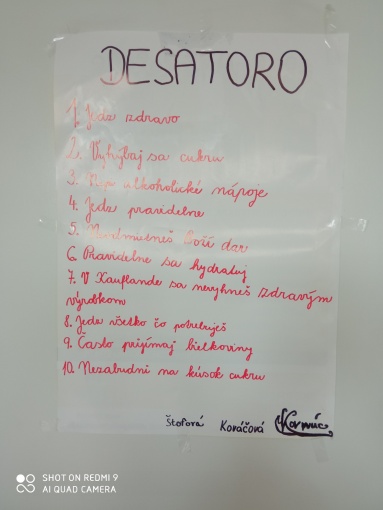 DESATORO
1. Jedz zdravo
2. Vyhýbaj sa cukru
3. alkoholické nápoje
4. Jedz pravidelne
5. Boží dar
6. Pravidelne sa hydratuj
7. V Kauflande sa nevyhneš zdravým
výrobkom
8. Jedz všetko čo potrebuješ
9. Často prijímaj bielkoviny
10. Nezabudni na kúsok cukru
Štofová Kováčová
SHOT ON REDMI 9
AI QUAD CAMERA